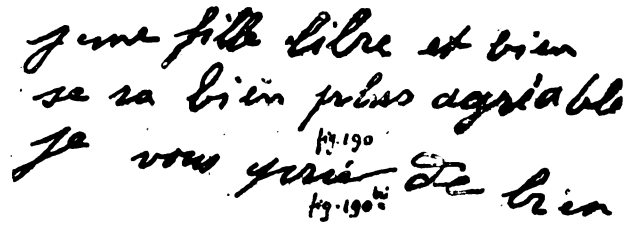 jeune fille libre et bien
se ra bien plus agréable
fig. 190
je vous prie De bien
fig. 190 bis